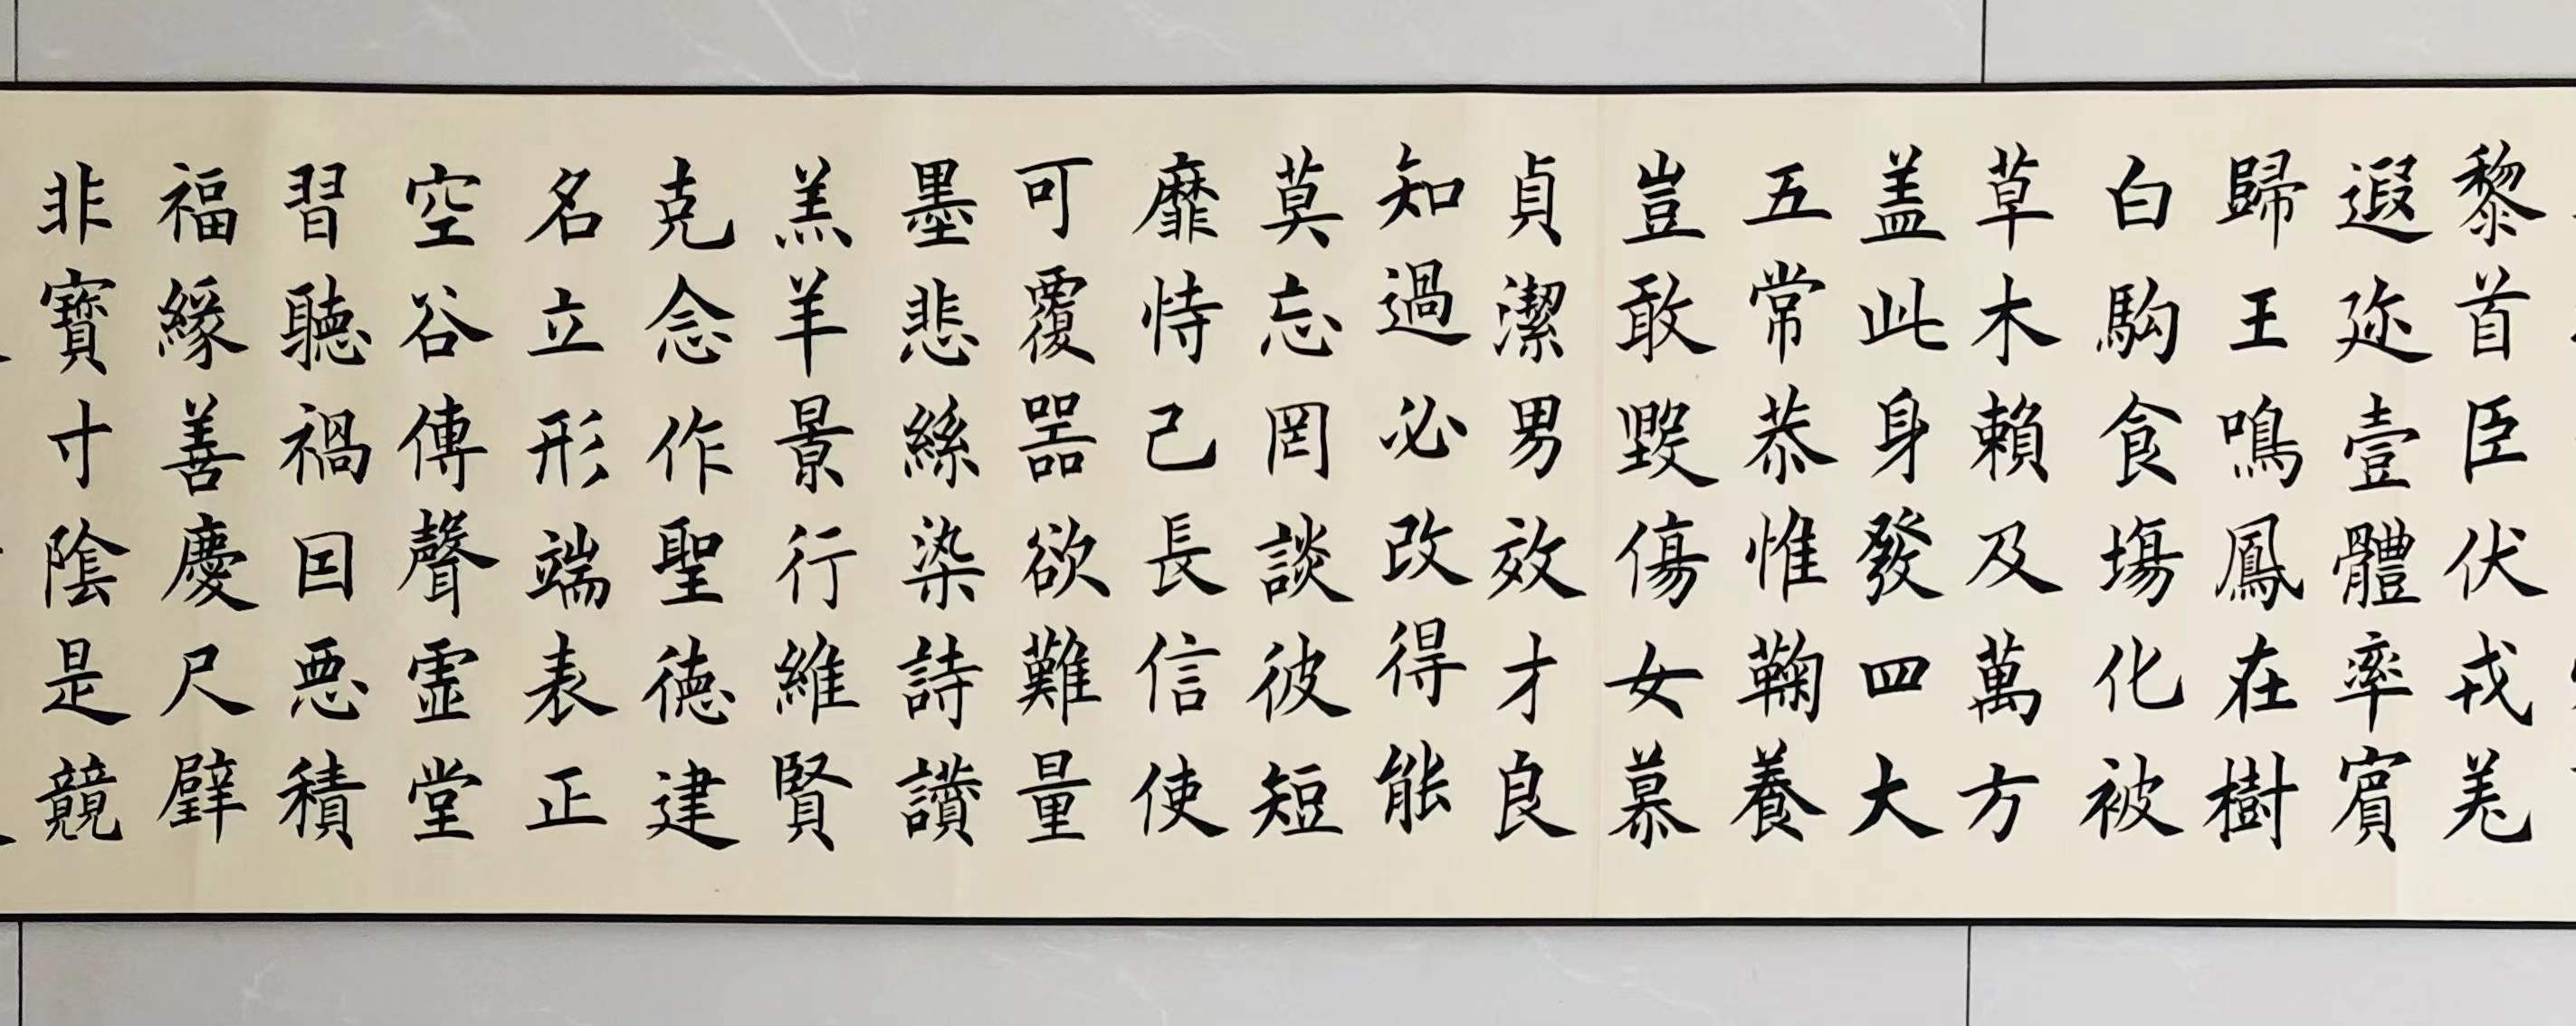 黎首臣伏戎羌
遐迩壹體率賓
歸王鳴鳳在樹
白駒食塲化被
草木賴及萬方
盖此身發四大
五常恭惟鞠養
豈敢毀傷女慕
貞潔男效才良
知過必改得能
莫忘罔談彼短
靡恃己長信使
可覆器欲難量
墨悲絲染詩讚
羔羊景行維賢
克念作聖德建
名立形端表正
空谷傳聲虛堂
習聽禍囙惡積
福緣善慶尺璧
非寶寸陰是競